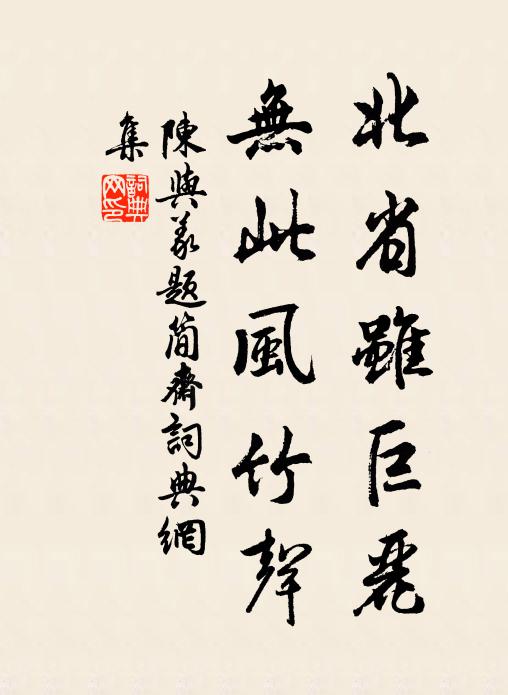 北省雖巨麗
無此風竹聲
陳與義題簡齋詞典網
集
詞典網印